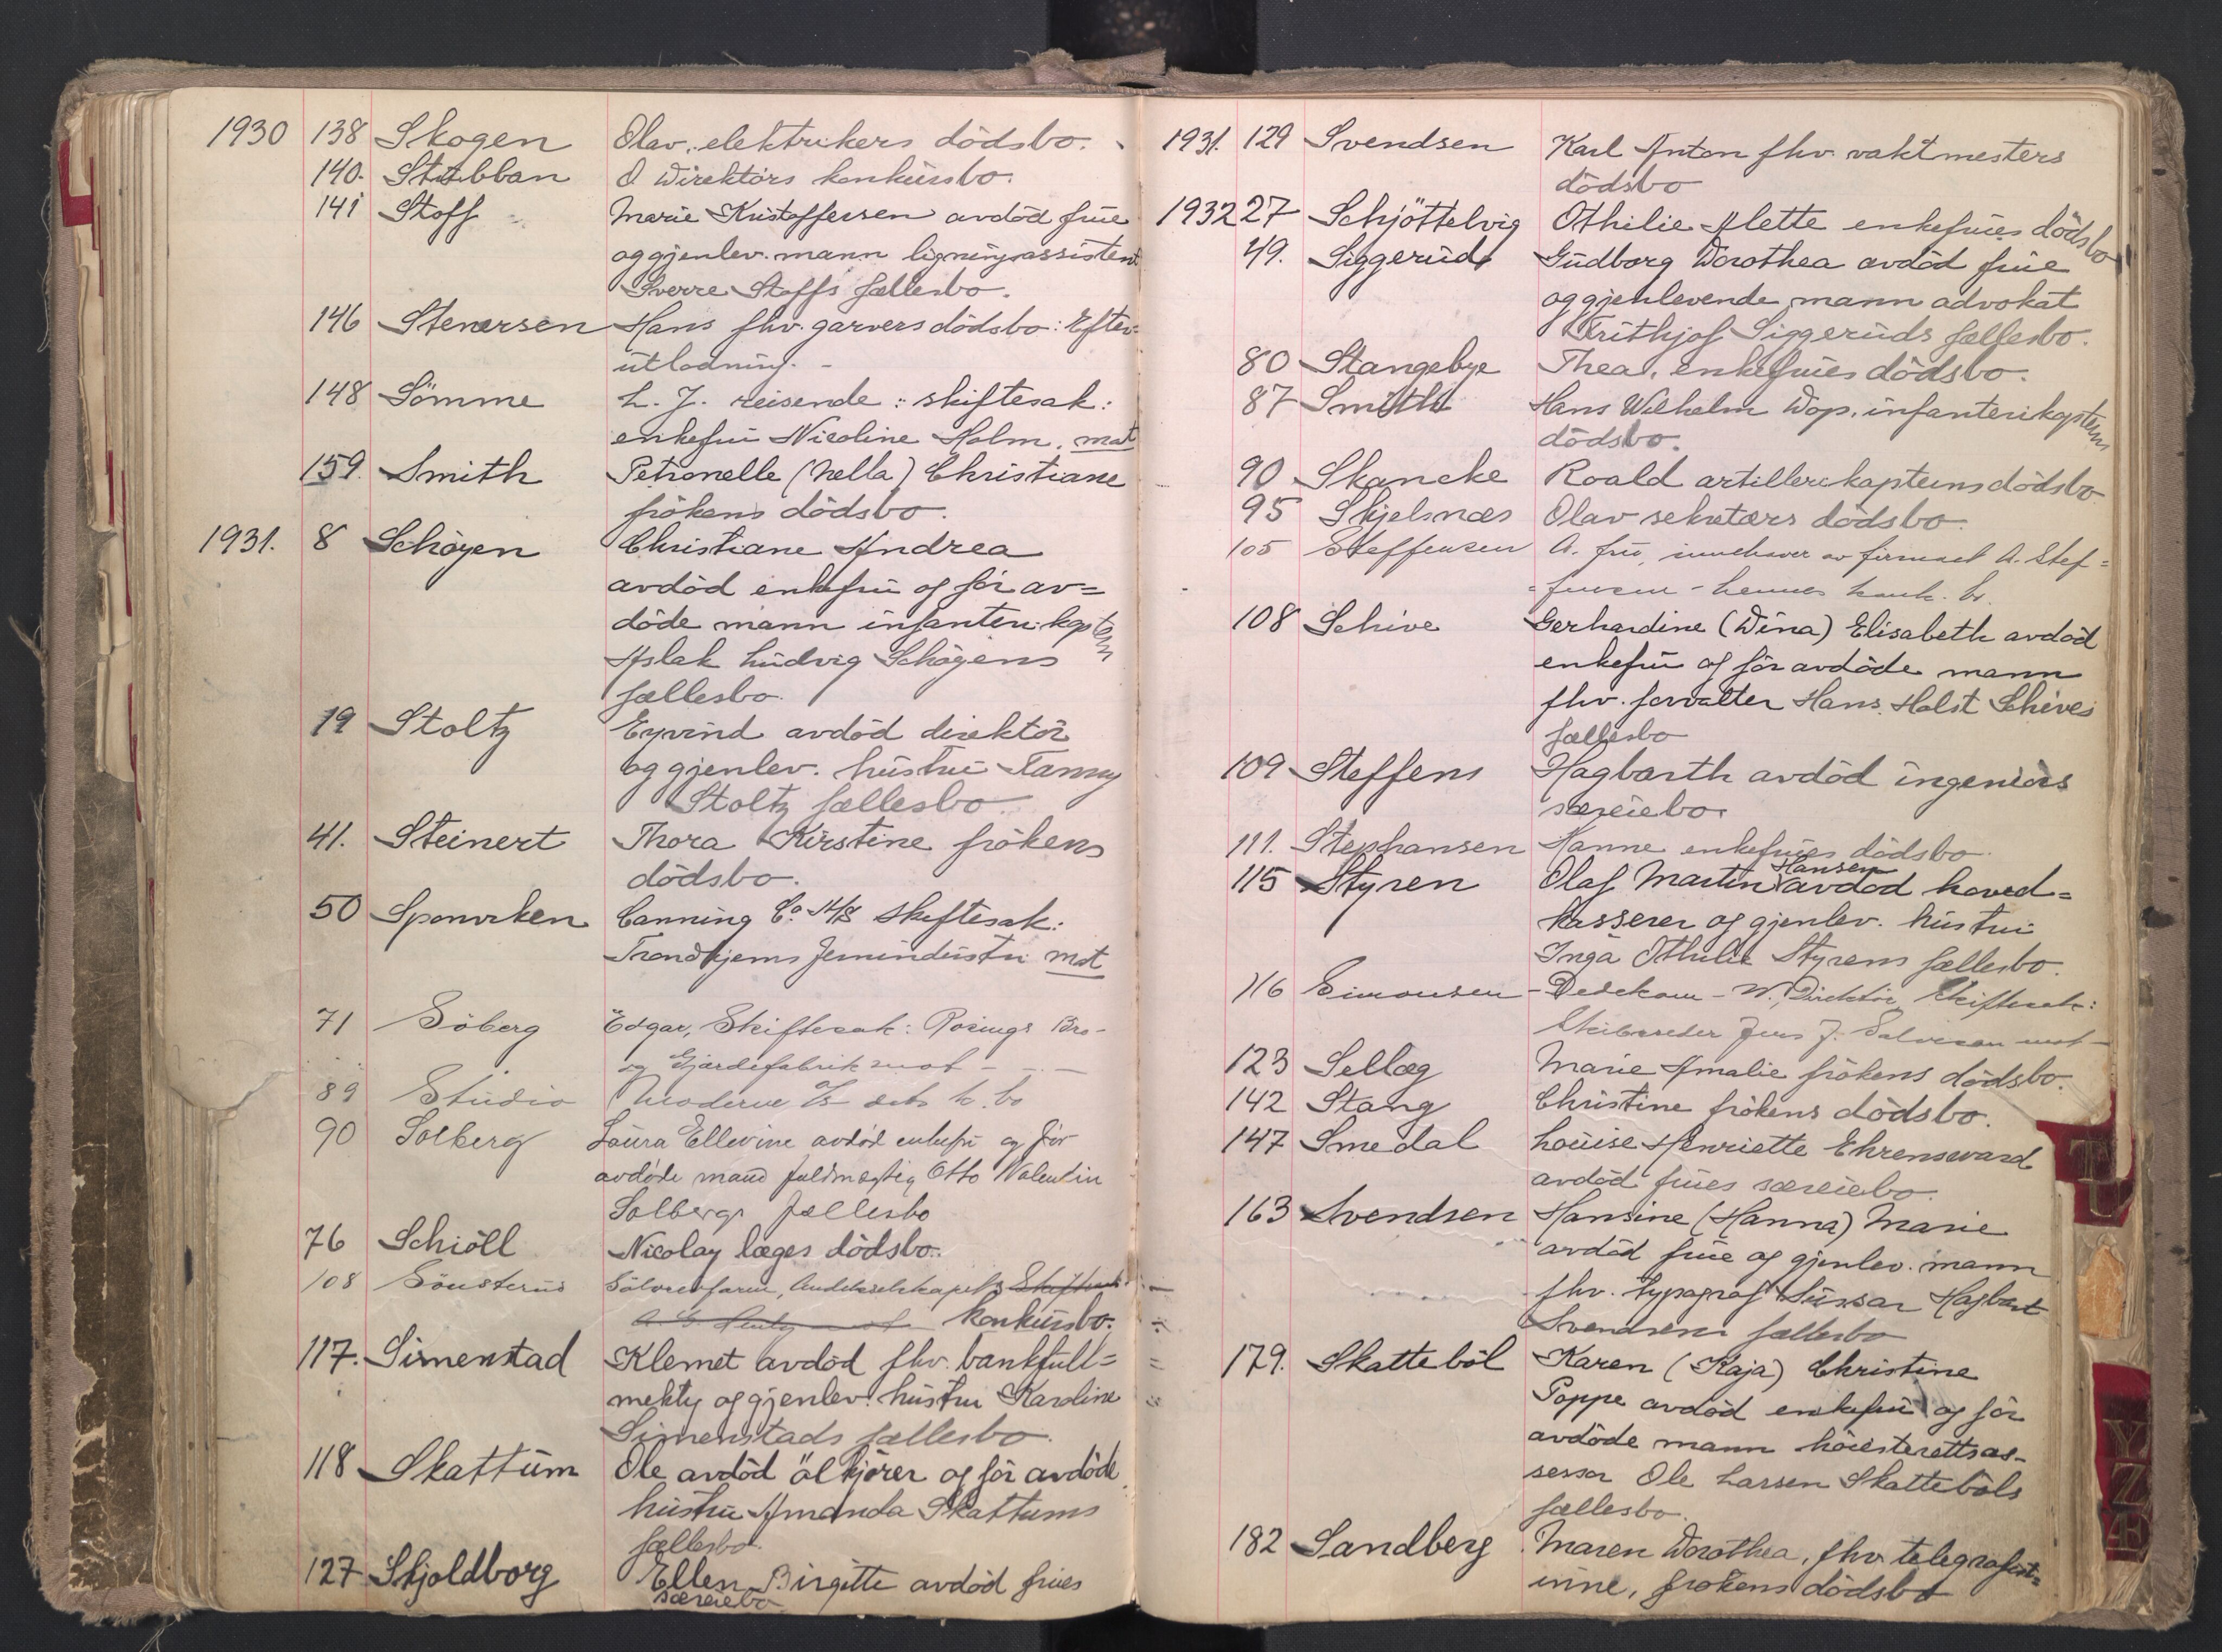 1930 138 Skogen Olav, elektrikers dödsbo.
140. Stubban O direktörs konkursbo.
141 Stoff Marie Kristoffersen avdöd frue
og gjenlev. mann ligningsassistent
Sverre Stoffs fællesbo.
146 Stenersen Hans fhv. garvers dödsbo: Efter-
utlodning. -
148 Sömme L. J. reisende: skiftesak:
enkefru Nicoline Holm. mot
159. Smith Petronelle (Nella) Christiane
frökens dödsbo.
1931. 8 Schøyen Christiane Andrea
avdöd enkefru og för av=
döde mann infanteri-kaptein
Aslak Ludvig Schøyens
fællesbo.
19 Stoltz Eyvind avdöd direktör
og gjenlev. hustru Fanny
Stoltz fællesbo
41. Steinert Thora Kirstine frökens
dödsbo.
50 Sponviken Canning Co A/S skiftesak:
Trondhjems Jernindustri mot
71 Söberg Edgar, Skiftesak: Rosings Bro-
og Gjærdefabrik mot - - -
89 Studio Moderne A/S dets k. bo
90 Solberg Laura Ellevine avdöd enkefr og för
avdøde mand fuldmægtig Otto Valentin
Solbergs Fællesbo
76 Schiöll Nicolay læges dödsbo.
108 Sönsterud Sölvrevfarm, Andelsselskapets
konkursbo.
117. Simenstad Klemet avdöd fhv. bankfull=
mektig og gjenlev. hustru Karoline
Simenstads fællesbo.
118 Skattum Ole avdöd ölkjörer og för avdöde
hustru Amanda Skattums
fællesbo.
127 Skjoldborg Ellen Birgitte avdöd frues
særeiebo
1931. 129 Svendsen Karl Anton fhv. vaktmesters
dödsbo
1932 27 Schjöttelvig Othilie Alette enkefrues dödsbo
49. Siggerud Gudborg Dorothea avdöd frue
og gjenlevende mann advokat
Frithjof Siggeruds fællesbo.
80 Stangebye Thea, enkefrues dödsbo.
87 Smith Hans Wilhelm Dop. infanterikapteins
dödsbo.
90 Skancke Roald artillerikapteins dödsbo
95 Skjelsnæs Olav sekretærs dödsbo.
105 Steffensen A. fru, innehaver av firmaet A. Stef=
fensen - hennes konk. bo.
108 Schive Gerhardine (Dina) Elisabeth avdöd
enkefru og för avdöde mann
fhv. forvalter Hans Holst Schives
fællesbo
109 Steffens Hagbarth avdöd ingeniörs
særeiebo.
111. Stephansen Hanne enkefrues dödsbo.
115 Styren Olaf Martin Hansen avdöd hoved=
kasserer og gjenlev. hustru
Inga Othilie Styrens fællesbo.
116 Simonsen - Dedekam - W., Direktör, Skiftesak:
Skibsreder Jens J. Salvesen mot -
123 Sellæg Marie Amalie frökens dödsbo.
142 Stang Christine frökens dödsbo.
147 Smedal Louise Henriette Ehrensvard
avdöd frues særeiebo.
163 Svendsen Hansine (Hanna) Marie
avdöd frue og gjenlev. mann
fhv. typograf Hagbart
Svendsens fællesbo
179. Skatteböl Karen (Kaja) Christine
Poppe avdöd enkefru og för
avdöde mann höiesterettsas-
sessor Ole Larsen Skatteböls
fællesbo.
182 Sandberg Maren Dorothea, fhv. telegrafist=
inne, frökens dödsbo
TU
YZÆ